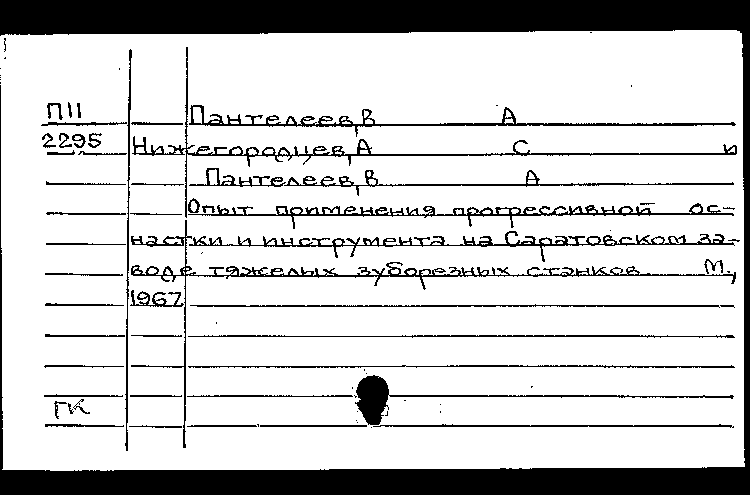 П11 Пантелеев, В А
2295 Нижегородцев, А С и
Пантелеев, В А
Опыт применения прогрессивной ос-
настки и инструмента на Саратовском за-
воде тяжелых зуборезных станков. М.,
1967
ГК